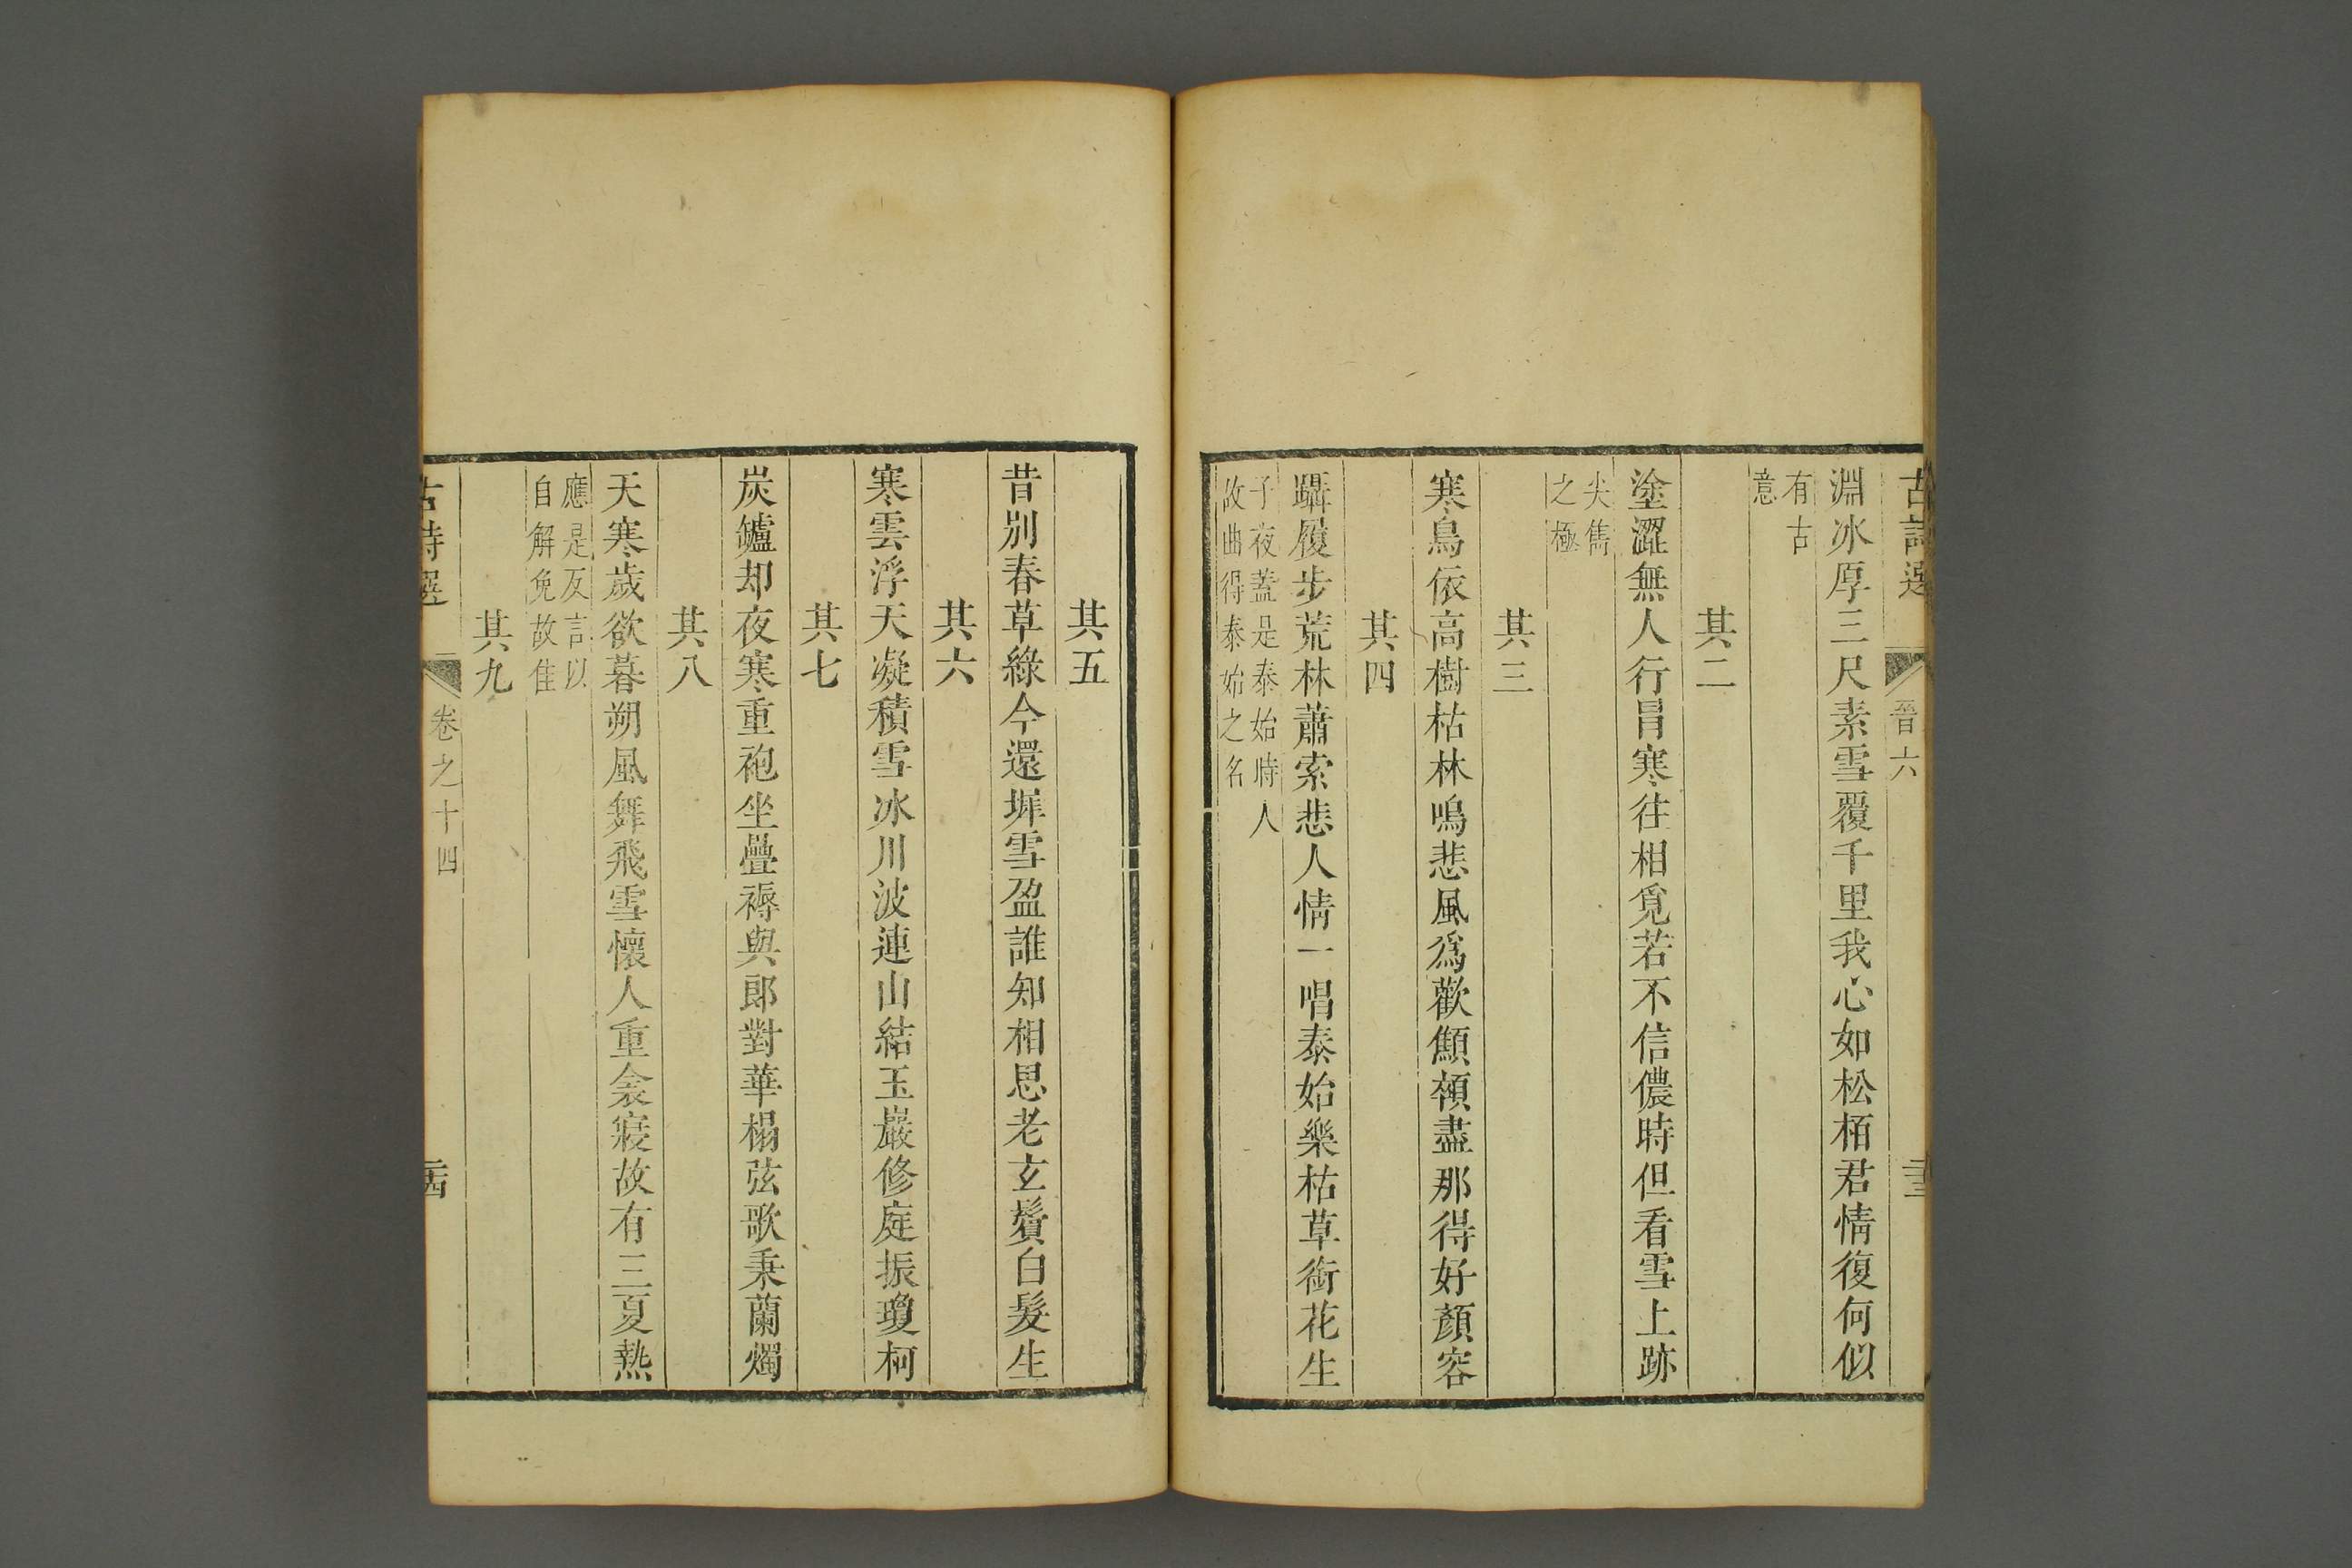 古詩選 晉六 二十三
淵冰厚三尺素雪覆千里我心如松栢君情復何似
有古
意
其二
塗澀無人行冒寒往相覓若不信儂時但看雪上跡
尖雋
之極
其三
寒鳥依高樹枯林鳴悲風爲歡顦顇盡那得好顏容
其四
躡履步荒林蕭索悲人情一唱泰始樂枯草銜花生
子夜葢是泰始時人
故曲得泰始之名
其五
昔別春草綠今還墀雪盈誰知相思老玄鬢白髮生
其六
寒雲浮天凝積雪冰川波連山結玉巖修庭振瓊柯
其七
炭罏却夜寒重袍坐疊褥與郎對華榻弦歌秉蘭燭
其八
天寒歲欲暮朔風舞飛雪懷人重衾寢故有三夏熱
應是反言以
自解免故佳
其九
古詩選 卷之十四 二十四